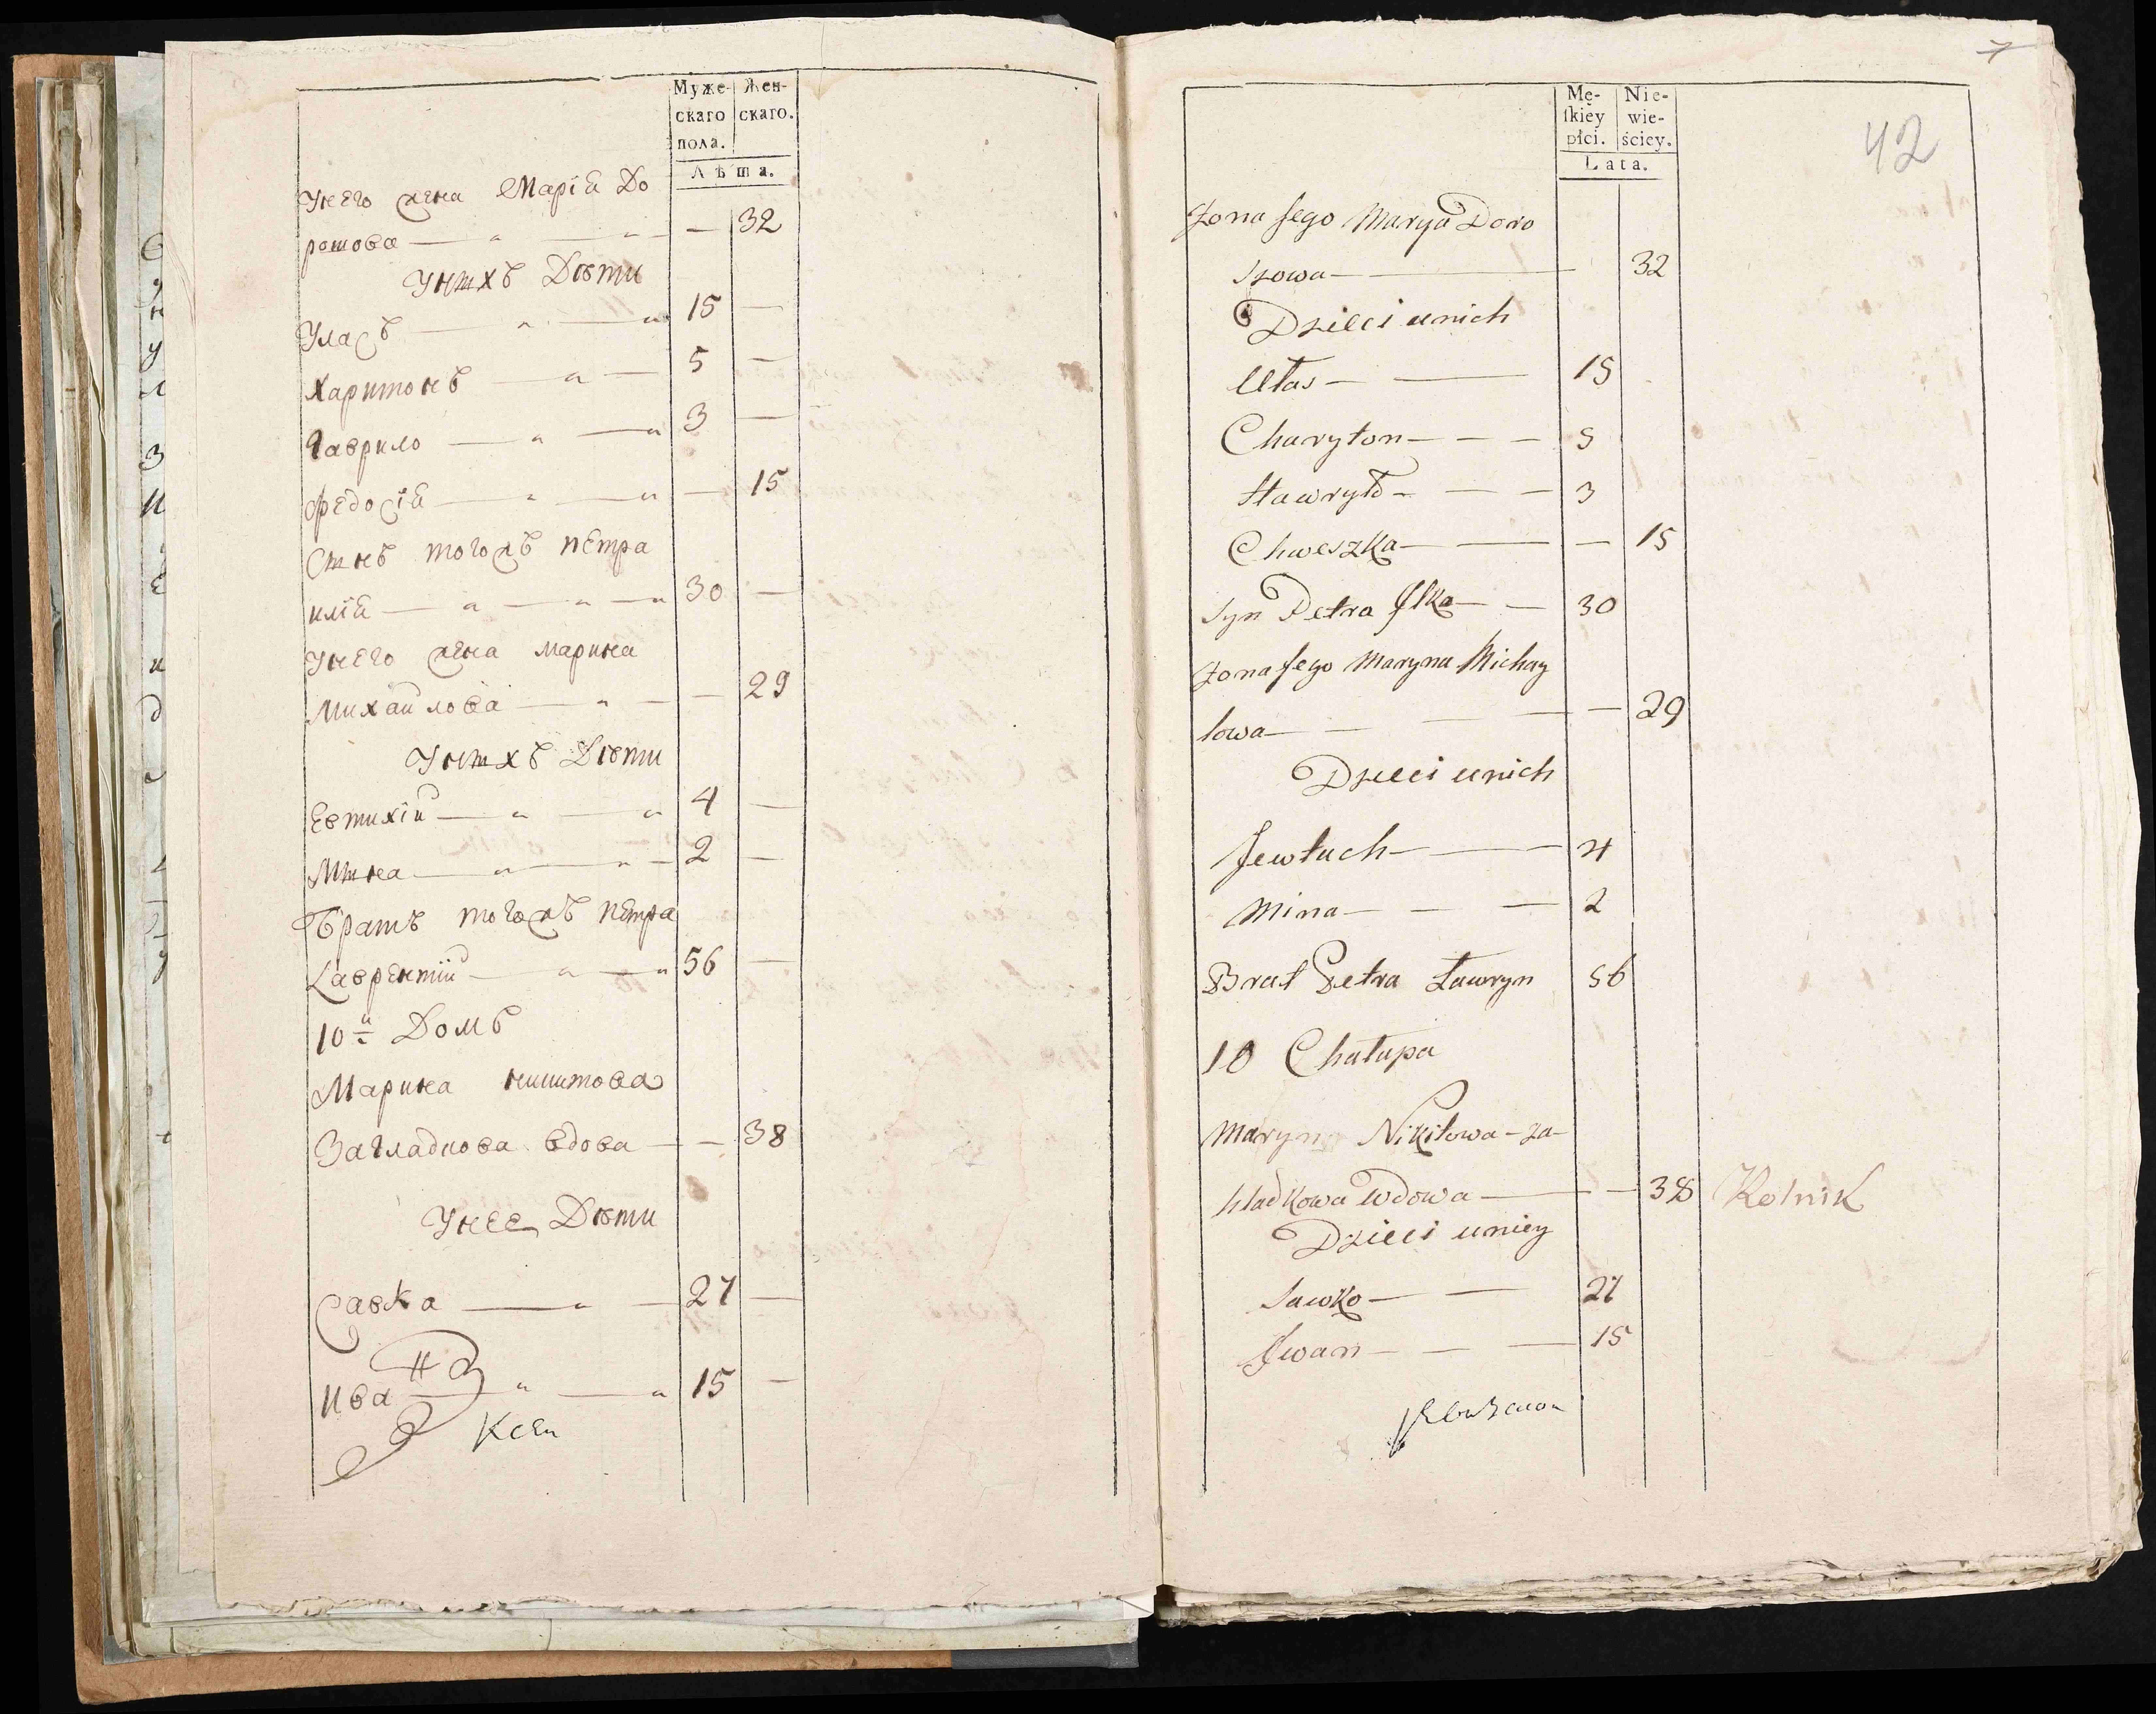 Муже-
скаго
пола.
Жен-
скаго.
Лѣта.
Унего жена Марiа До
рошова — — — 32
Унихъ Дѣти
Уласъ — — 15 —
Харитонъ — — 5 —
Гаврило — — 3 —
Федосiа — — — 15
Синъ тогожъ Петра
илiа — — — 30 —
Унего жена марина
Михайлова — — — 29
Унихъ Дѣти
Евтихiй — — 4 —
Мина — — 2 —
Братъ тогожъ Петра
Лаврентiй — — 56 —
10й Домъ
Марина никитова
Загладкова вдова — — 38
Унее Дѣти
Савка — — 27 —
Ива — — 15 —
Ксен
7
42
Mę-
ſkiey
płci.
Nie-
wie-
ściey.
Lata.
Zona Jego Marya Doro
szowa — 32
Dzieci unich
Ułas — — 15
Charyton — — — 5
Hawryło — — — 3
Chweszka — — — 15
Syn Petra Jlka — — 30
Zona Jego Maryna Michay
łowa — — — — — 29
Dzieci unich
Jewtuch — — 4
Mina — — — 2
Brat Petra Ławryn 56
10 Chałupa
Maryna Nikitowa — Za-
hładkowa Wdowa — — 38 Rolnik
Dzieci uniey
Sawko — — 27
Jwan — — — 15